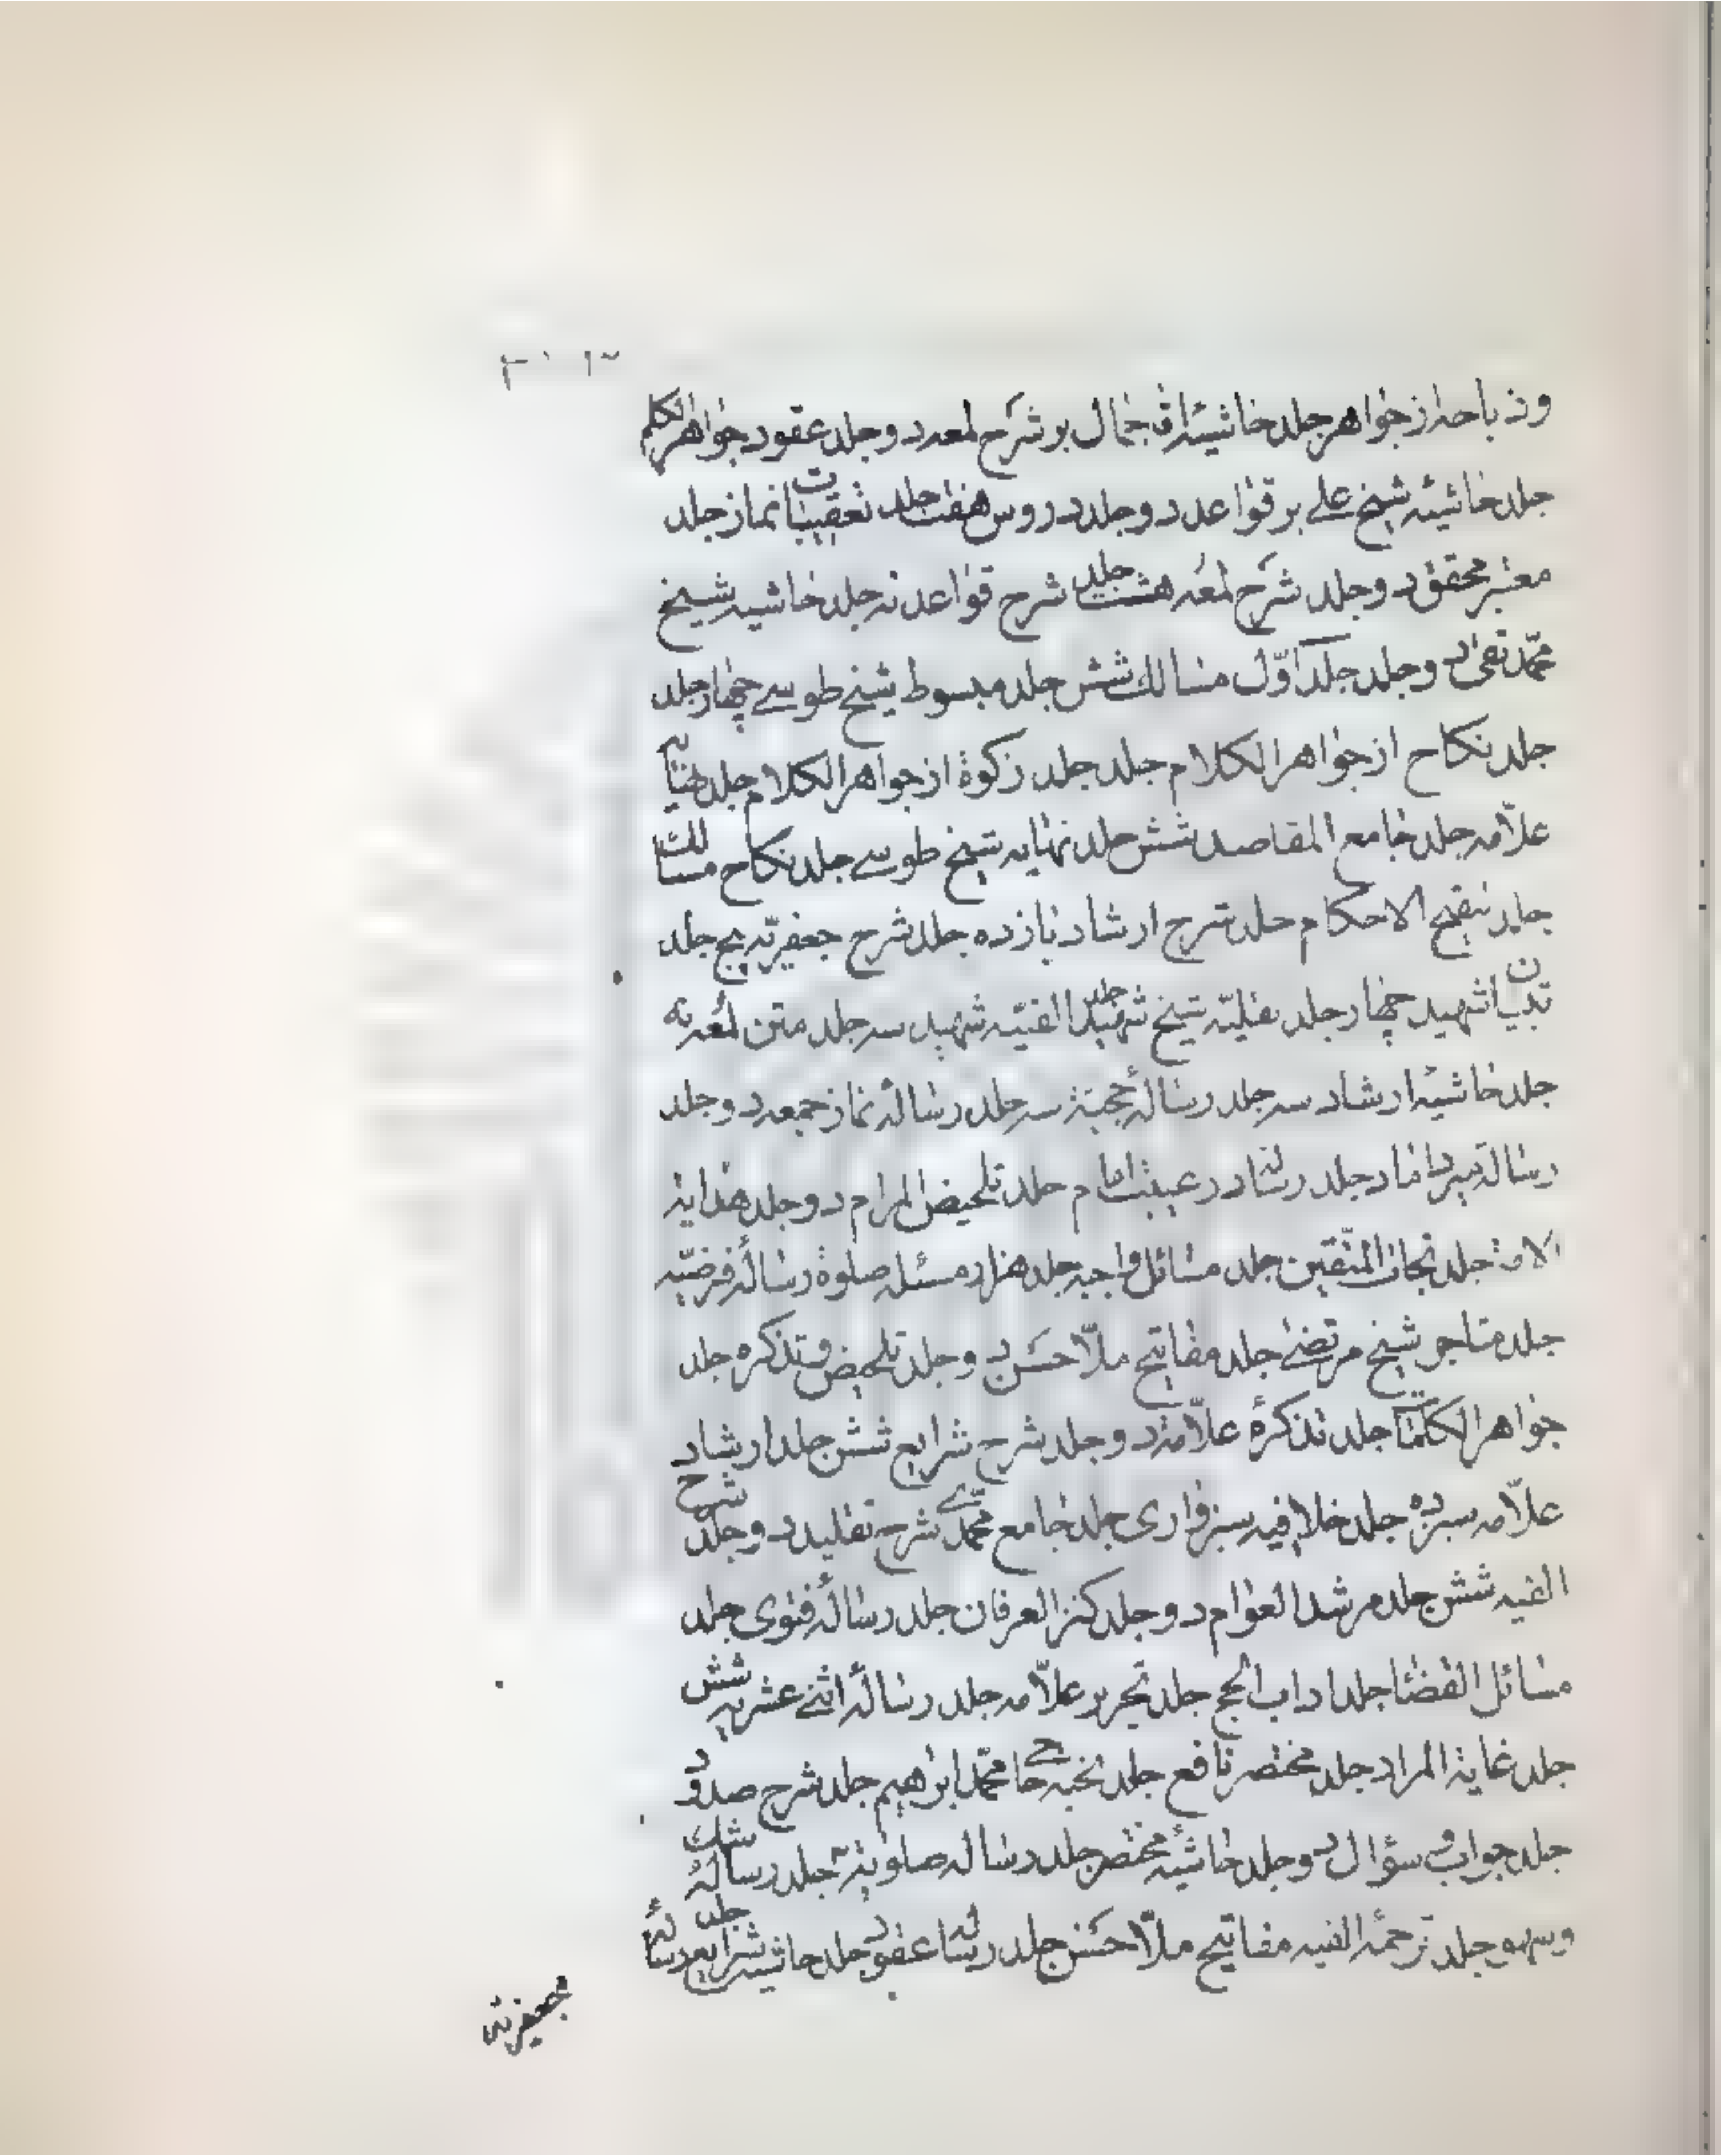 جواهر جلد حاشیهٔ اقا جمال بر شرح لمعه دو جلد عقود جواهر الکلم
جلد حاشیه شیخ علی بر قواعد دو جلد دروس هفت جلد تعقیبات نماز جلد
معتبر محقق دو جلد شرح لمعه هشت جلد شرح قواعد نه جلد حاشیه شیخ
محمّد تقی دو جلد جلد اوّل مسالک شش جلد مبسوط شیخ طوسی چهار جلد
جلد نکاح از جواهر الکلام جلد جلد زکوة از جواهر الکلام جلد نهایه
علاّمه جلد جامع المقاصد شش جلد نهایه شیخ طوسی جلد نکاح مسالک
جلد تنقیح الاحکام جلد شرح ارشاد یازده جلد شرح جعفریّه پنج جلد
شهید چهار جلد نفلیّه شیخ شهید جلد الفیّه شهید سه جلد متن لمعه نه
جلد حاشیهٔ ارشاد سه جلد رسالهٔ سه جلد رسالهٔ نماز جمعه دو جلد
رساله میر داماد جلد رساله در غیبت امام جلد تلخیص المرام دو جلد هدایة
الامة جلد نجات المتّقین جلد مسائل واجبه جلد هزار مسئله صلوة رسالهٔ فرضیّه
جلد متاجر شیخ مرتضی جلد مفاتیح ملاّ محسن دو جلد تلخیص و تذکره جلد
جواهر الکلمات جلد تذکرهٔ علاّمه دو جلد شرح شرایع شش جلد ارشاد
علاّمه جلد خلافیه سبزواری جلد جامع محمّدی شرح نفلیه دو جلد شرح
الفیه شش جلد مرشد العوام دو جلد کنز العرفان جلد رسالهٔ فتوی جلد
مسائل القضا جلد اداب الحج جلد تحریر علاّمه جلد رسالهٔ اثنی عشریه شش
جلد غایة المراد جلد مختصر نافع جلد نخبه حاجی محمّد ابراهیم جلد شرح صدوق
جلد جواب و سؤال دو جلد حاشیهٔ مختصر جلد رساله صلوتیّه جلد رسالهٔ شک
و سهو جلد ترجمهٔ الفیه مفاتیح ملاّ محسن جلد رساله عقود جلد حاشیه شرایع جلد رسالهٔ
جعفریّه